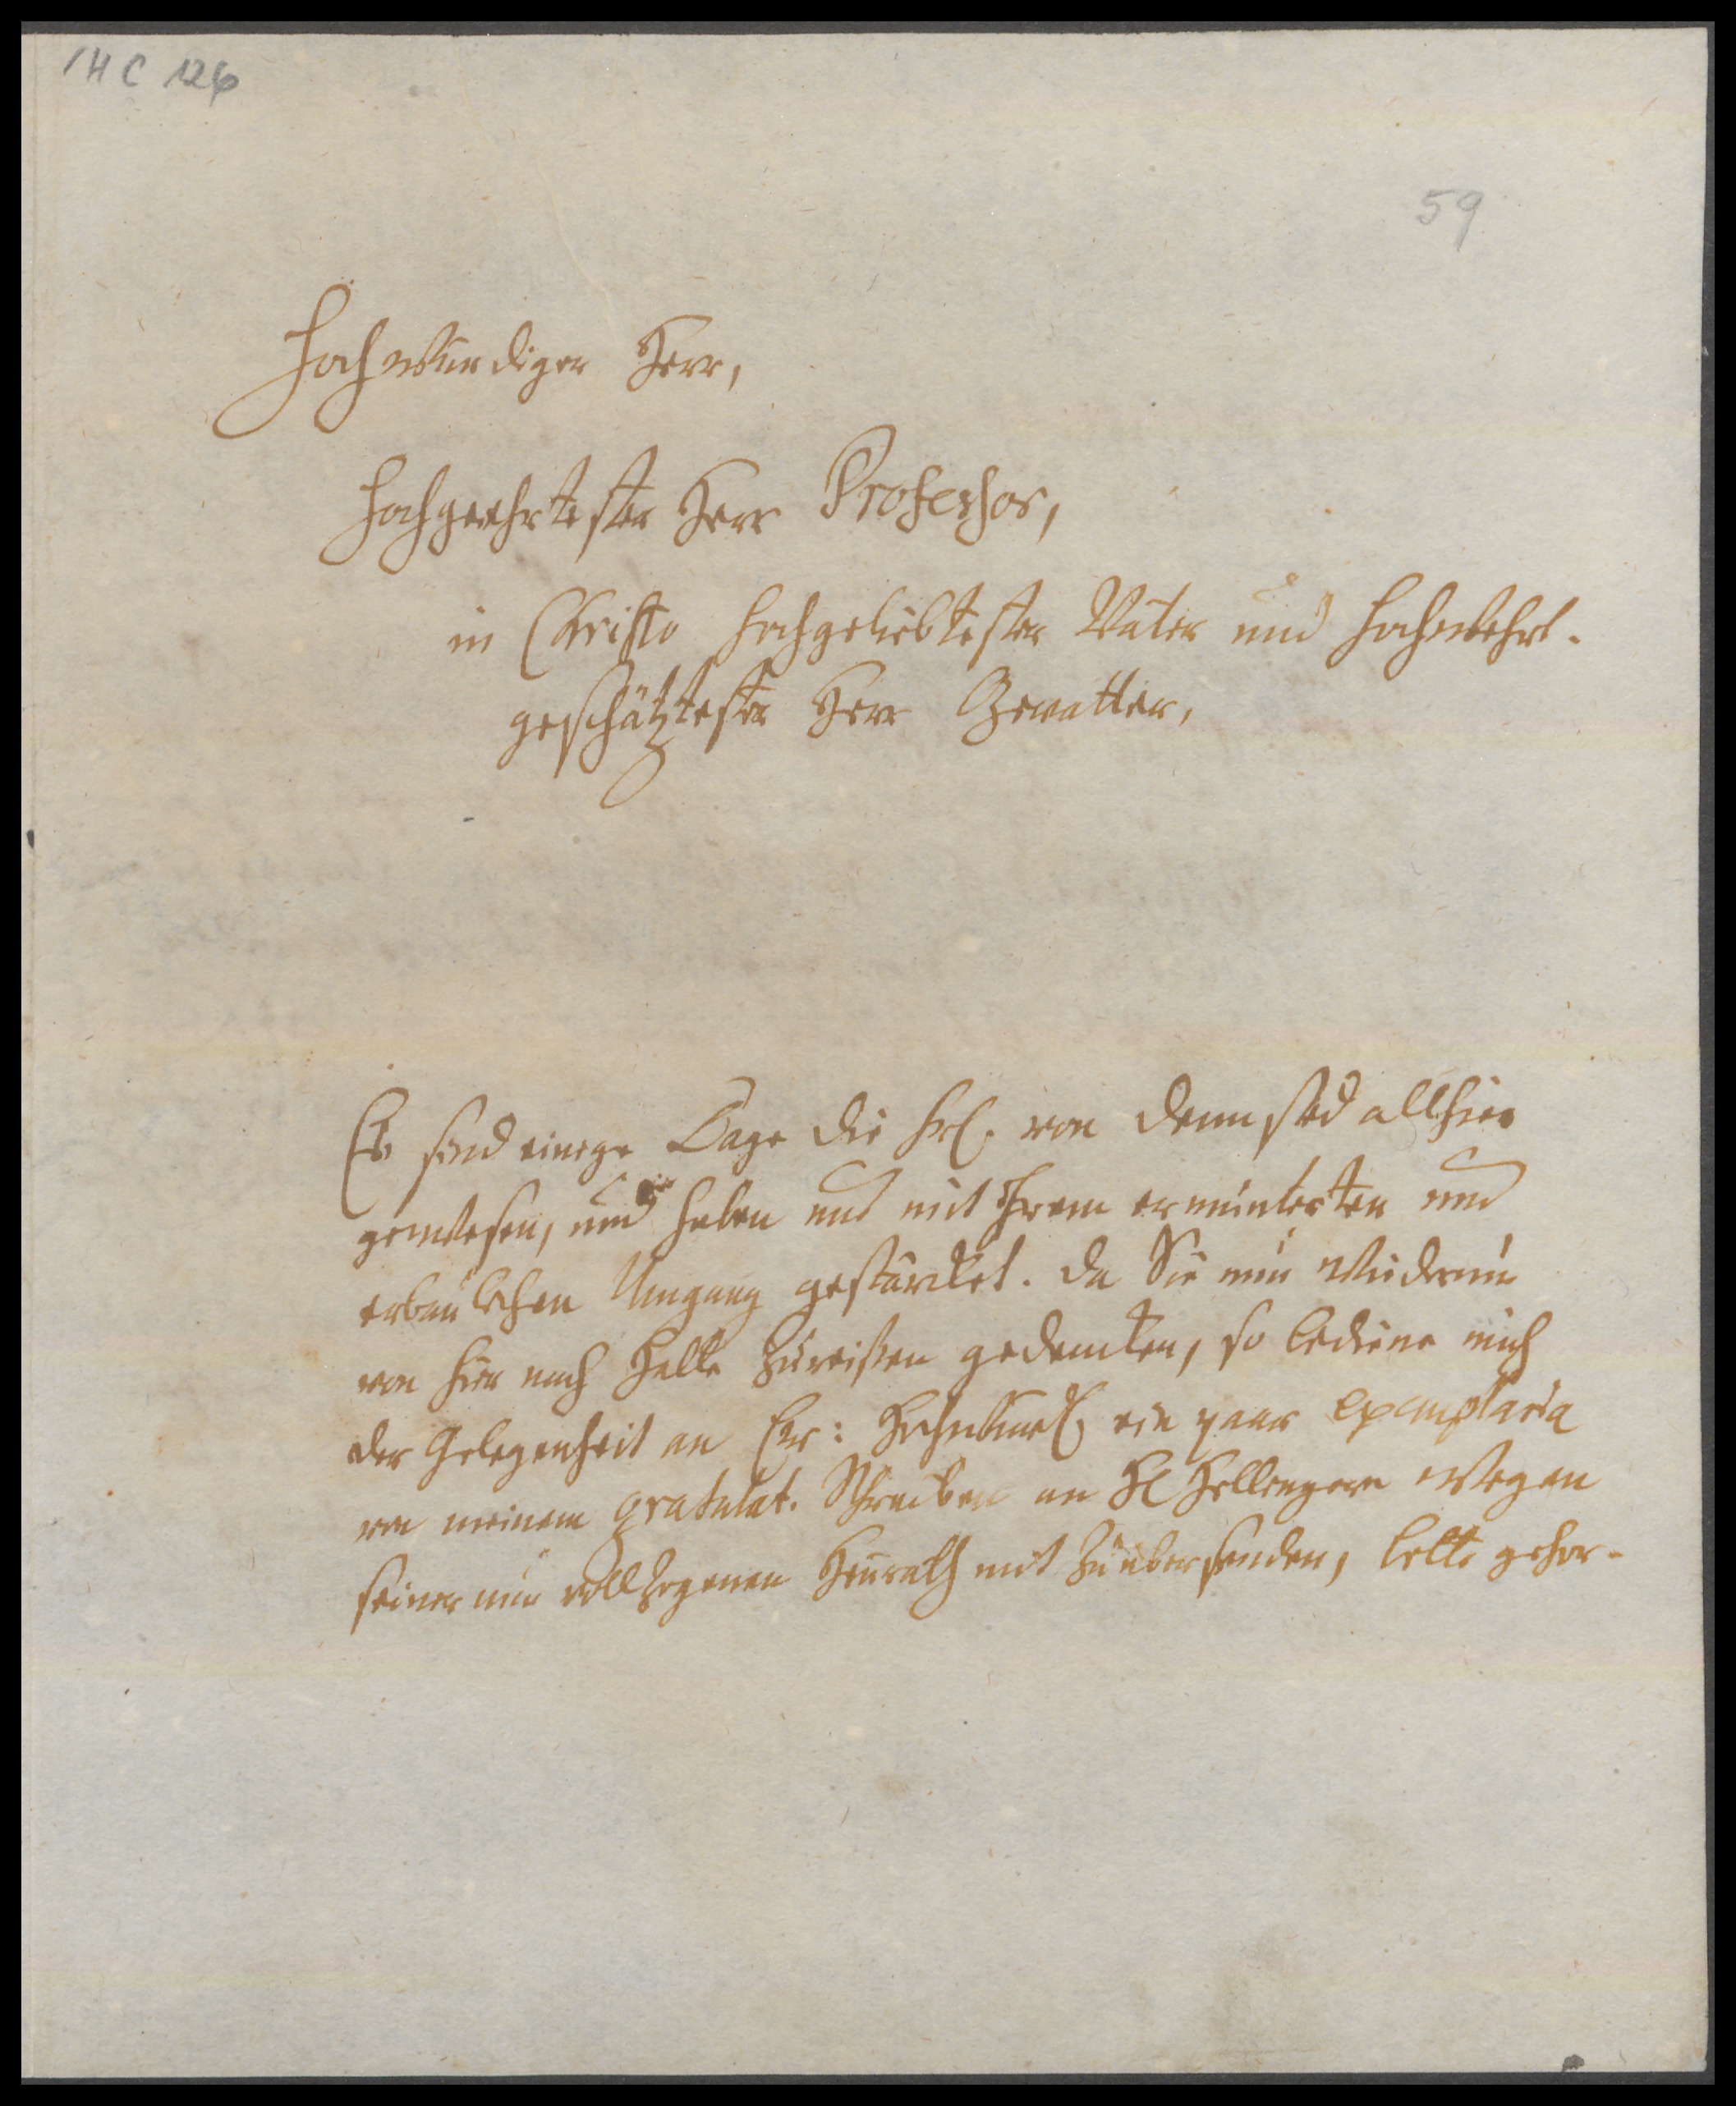 1 H C 126
59
Hochwürdiger Herr,
Hochgeehrtester Herr Professor,
in Christo hochgeliebtester Vater und hochwehrt-
geschätztester Herr Gevatter,
Es sind einige Tage die Frl. von Dennsted allhier
gewesen, und haben uns mit Ihrem ermunterten und
erbaulichen Umgang gestärcket. Da Sie nun wiederum
von hier nach Halle zureißen gedencken, so bediene mich
der Gelegenheit an Ew: Hochwürd. ein paar exemplaria
von meinem gratulat. Schreiben an H. Hellengern wegen
seiner nun vollzogenen Heurath mit zuübersenden, bitte gehor-